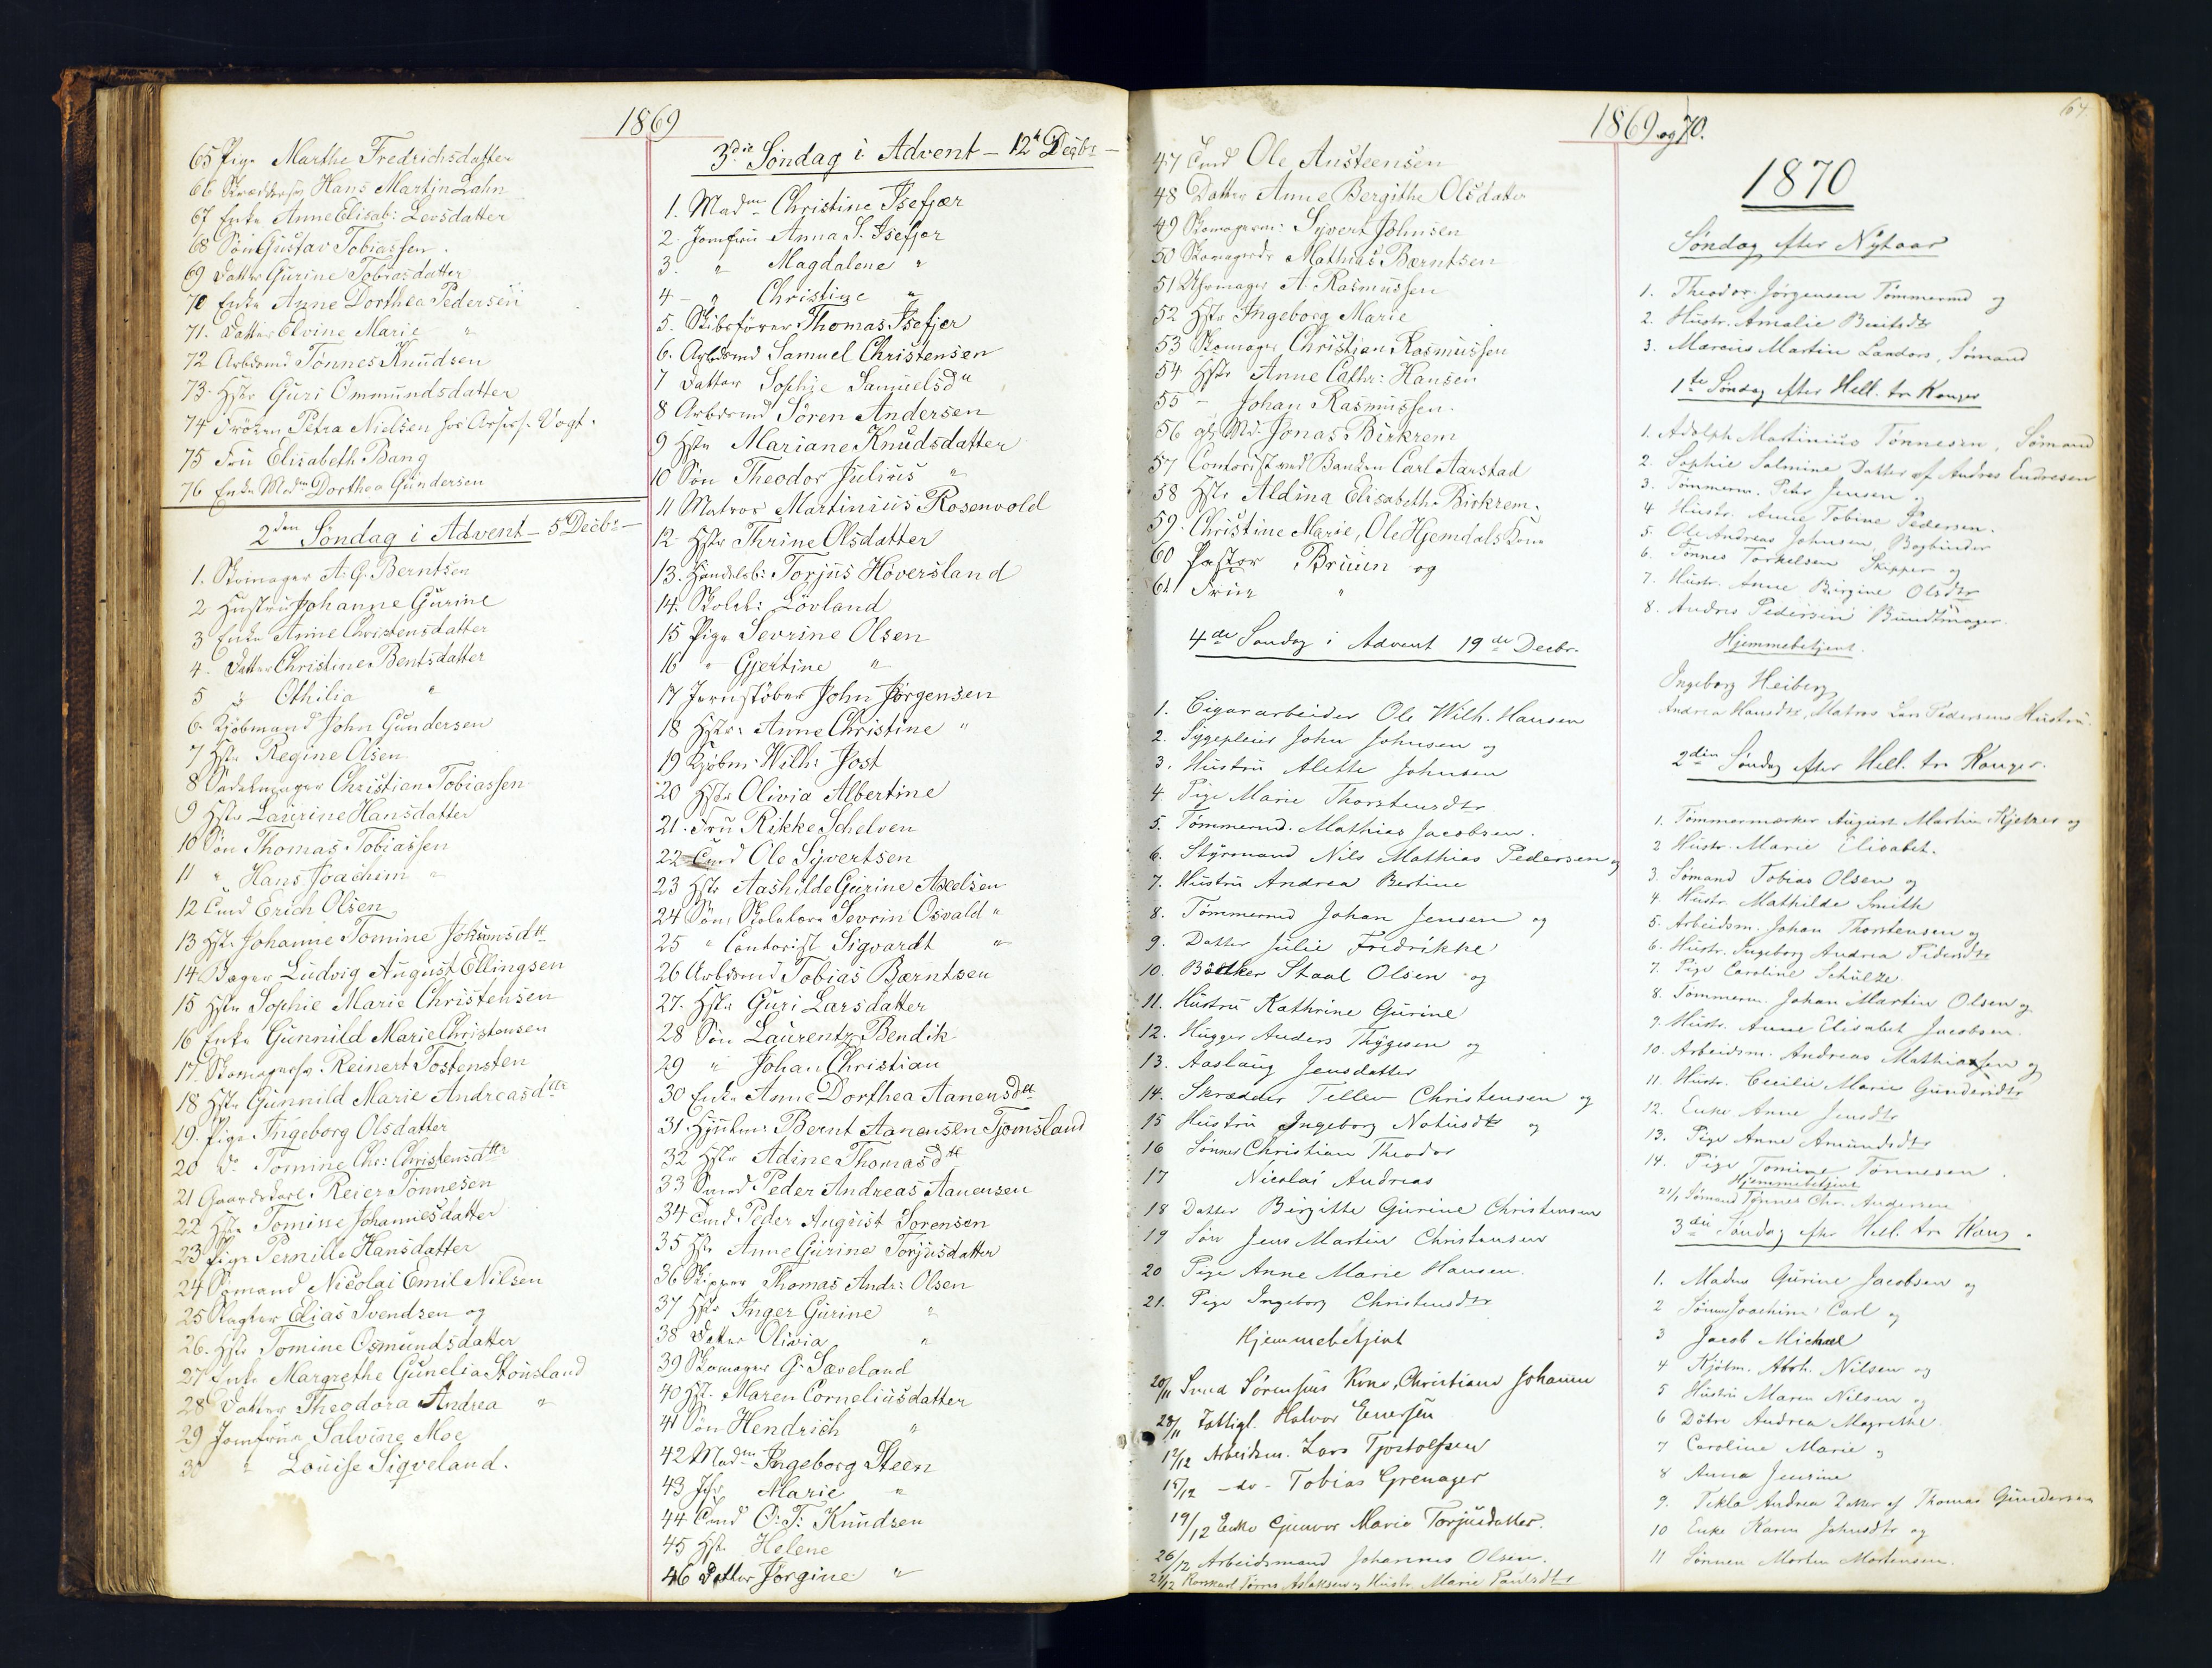 1869
65 Pige Marthe Fredrichsdatter
66 Skrædders. Hans Martin Lahn
67 Enke Anne Elisab: Levsdatter
68 Søn Gustav Tobiassen.
69 Datter Gurine Tobiasdatter
70 Enke Anne Dorthea Pedersen
71. Datter Elvine Marie "
72 Arbdsmd Tønnes Knudsen
73. Hstr Guri Ommundsdatter
74 Frøken Petra Nielsen hos Vogt.
75 Fru Elisabeth Bang
76 Enke Mdm Dorthea Gundersen
2den Søndag i Advent – 5 Decbr –
1. Skomager A. G. Berntsen
2 Hustru Johanne Gurine
3 Enke Anne Christensdatter
4. Datter Christine Bentsdatter
5 " Othilia "
6. Kjøbmand John Gundersen
7 Hstr Regine Olsen
8 Sadelmager Christian Tobiassen
9 Hstr Laurine Hansdatter
10 Søn Thomas Tobiassen
11 " Hans Joachim "
12 Cmd Erich Olsen
13 Hstr Johanne Tomine Jokumsdtt
14 Bager Ludvig August Ellingsen
15 Hstr Sophie Marie Christensen
16 Enke Gunnild Marie Christensen
17. Reinert Tostensten
18 Hstr Gunnild Marie Andreasdttr
19. Pige Ingeborg Olsdatter
20 Do Tomine Chr: Christensdttr
21 Gaardskarl. Reier Tønnesen
22 Hstr Tomine Johannesdatter
23 Pige Pernille Hansdatter
24 Sømand Nicolai Emil Nilsen
25 Slagter Elias Svendsen og
26. Hstr Tomine Osmundsdatter
27 Enke Margrethe Gunelia Stousland
28 Datter Theodora Andrea "
29 Jomfrue Salvine Moe
30 " Louise Sigveland.
3die Søndag i Advent – 12te Decbr –
1. Madm Christine Isefjær
2. Jomfru Anna S. Isefjer
3. " Magdalene "
4 – " Christine "
5. Skibsfører Thomas Isefjer
6. Arbdsmd Samuel Christensen
7 Datter Sophie Samuelsdtr
8 Arbdsmd Søren Andersen
9 Hstr Mariane Knudsdatter
10 Søn Theodor Julius "
11 Matros Martinius Rosenvold
12. Hstr Thrine Olsdatter
13. Handelsb: Torjus Høversland
14. Skolel: Løvland
15 Pige Sevrine Olsen
16 " Gjertine "
17 Jernstøber John Jørgensen
18 Hstr: Anne Christine "
19 Kjøbm. Wilh: Jost
20 Hstr Olivia Albertine
21. Fru Rikke Schelven
22 Cmd Ole Syvertsen
23 Hstr Aashilde Gurine Axelsen
24 Søn, Skolelærer Sevrin Osvald "
25 " Contorist Sigvardt "
26 Arbdsmd Tobias Bærntsen
27. Hstr Guri Larsdatter
28 Søn Laurentz Bendik
29 " Johan Christian
30 Enke Anne Dorthea Aanensdtt
31 Bernt Aanensen Tjomsland
32 Hstr Adine Thomasdtt
33 Peder Andreas Aanensen
34 Cmd Peder August Sorensen
35 Hstr Anne Gurine Torjusdatter
36 Skipper Thomas Andr: Olsen
37 Hstr Inger Gurine "
38 Datter Olivia "
39 Skomager G. Sæveland
40 Hst. Maren Corneliusdatter
41 Søn Hendrich "
42 Madm Ingeborg Steen
43 Jfr Marie "
44 Cmd O. T. Knudsen
45 Hstr Helene
46 Datter Jørgine "
1869 og 70.
64.
47 Cmd Ole Austeensen
48 Datter Anne Bergithe Olsdatter
49 Skomagerm: Syvert Johnsen
50 Mathias Bærntsen
51 Uhrmager A. Rasmussen
52 Hstr Ingeborg Marie
53 Skomager Christian Rasmussen
54 Hstr Anne Cathr: Hansen
55 – Johan Rasmussen.
56 Jonas Birkrem
57 Contorist ved Banken Carl Aarstad
58 Hstr Aldina Elisabeth Birkrem.
59. Christine Marie, Ole Hjemdals Kone
60 Pastor Bruun og
61 Frue "
4de Søndag i Advent 19de Decbr.
1. Cigararbeider Ole Wilh. Hansen
2. Sygepleier John Johnsen og
3. Hustru Alette Johnsen
4. Pige Marie Thorstensdtr.
5. Tømmermd. Mathias Jacobsen.
6. Styrmand Nils Mathias Pedersen og
7. Hustru Andrea Bertine
8. Tømmermd Johan Jensen og
9. Datter Julie Fredrikke
10. Bødker Staal Olsen og
11. Hustru Kathrine Gurine
12. Hugger Anders Thygesen og
13. Aaslaug Jensdatter
14. Skrædder Tellev Christensen og
15 Hustru Ingeborg Notusdtr og
16 Sønner Christian Theodor
17 Nicolai Andreas
18 Datter Birgitte Gurine Christensen
19 Søn Jens Martin Christensen
20 Pige Anne Marie Hansen.
21. Pige Ingeborg Christensdtr
Hjemmebetjent
20/11 Smed Sørensens Kone, Christiane Johanne
28/11 Fattigl. Halvor Enersen
12/12 Arbeidsm. Lars Tjostolfsen
15/12 – do – Tobias Grenager
19/12 Enke Gunvor Marie Torjusdatter.
26/12 Arbeidsmand Johannes Olsen.
27/12 Tørres Aslaksen og Hustr. Marie Paulsdtr
1870
Søndag efter Nytaar
1. Theodor Jørgensen Tømmermd og
2. Hustr. Amalie Bentsdtr
3. Marcus Martin Landors, Sømand
1te Søndag efter Hell. tre Konger
1. Adolph Martinius Tønnesen, Sømand
2. Sophie Salmine Datter af Andres Endresen
3. Tømmerm. Peter Jensen og
4 Hustr. Anne Tobine Pedersen.
5. Ole Andreas Johnsen, Bogbinder
6. Tønnes Torkelsen Skipper og
7. Hustr. Anne Birgine Olsdtr
8. Andres Pedersen Bundtmager.
Hjemmebetjent.
Ingeborg Heiberg
Andrea Hansdtr, Matros Lars Pedersens Hustru.
2den Søndag efter Hell. tre Konger.
1. Tømmermærker August Martin Kjelser og
2 Hustr. Marie Elisabet.
3. Sømand Tobias Olsen og
4. Hustr. Mathilde Smith
5. Arbeidsm. Johan Thorstensen og
6. Hustr. Ingeborg Andrea Pedersdtr
7. Pige Caroline Schultze
8. Tømmerm. Johan Martin Olsen og
9. Hustr. Anne Elisabet Jacobsen.
10. Arbeidsm. Andreas Mathiassen og
11. Hustr. Cecilie Marie Gundersdtr
12. Enke Anne Jensdtr
13. Pige Anne Amundsdtr
14. Pige Tomine Tønnesen.
Hjemmebetjent
21/1 Sømand Tønnes Chr. Andersen
3die Søndag efter Hell. tre Kong.
1. Madm Gurine Jacobsen og
2 Sønner Joachim Carl og
3 Jacob Michael
4 Kjøbm. Abrh. Nilsen og
5 Hustru Maren Nilsen og
6 Døtre Andrea Magrethe
7 Caroline Marie og
8 Anna Jensine
9. Tekla Andrea Datter af Thomas Gundersen
10 Enke Karen Johnsdtr og
11 Sønnen Morten Mortensen.